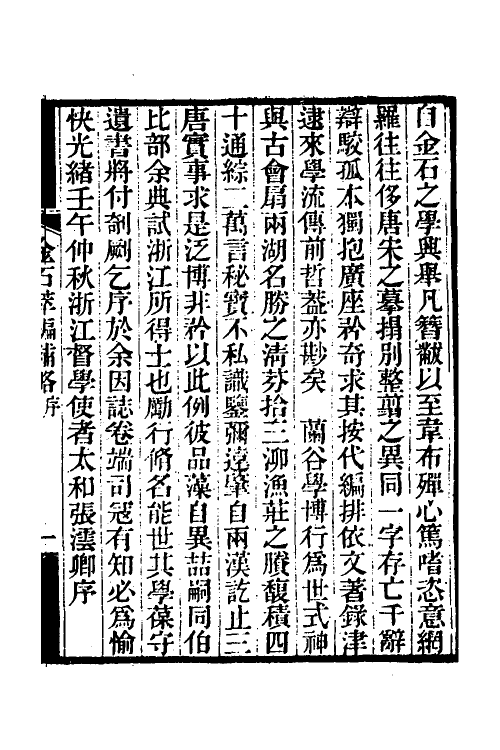 自金石之學興舉凡簪黻以至韋布殫心篤嗜恣意網
羅往往侈唐宋之摹搨別整翦之異同一字存亡千辭
辯駮孤本獨抱廣座矜奇求其按代編排依文著錄津
逮來學流傳前哲葢亦尠矣　蘭谷學博行爲世式神
與古會扇兩湖名勝之清芬拾三泖漁莊之賸馥積四
十通綜一萬言秘實不私識鑒彌遠肇自兩漢訖止三
唐實事求是泛博非矜以此例彼品藻自異詰嗣同伯
比部余典試浙江所得士也勵行脩名能世其學葆守
遺書將付剞劂乞序於余因誌卷端司冦有知必爲愉
快光緒壬午仲秋浙江督學使者太和張澐卿序
金石萃編補略序
一